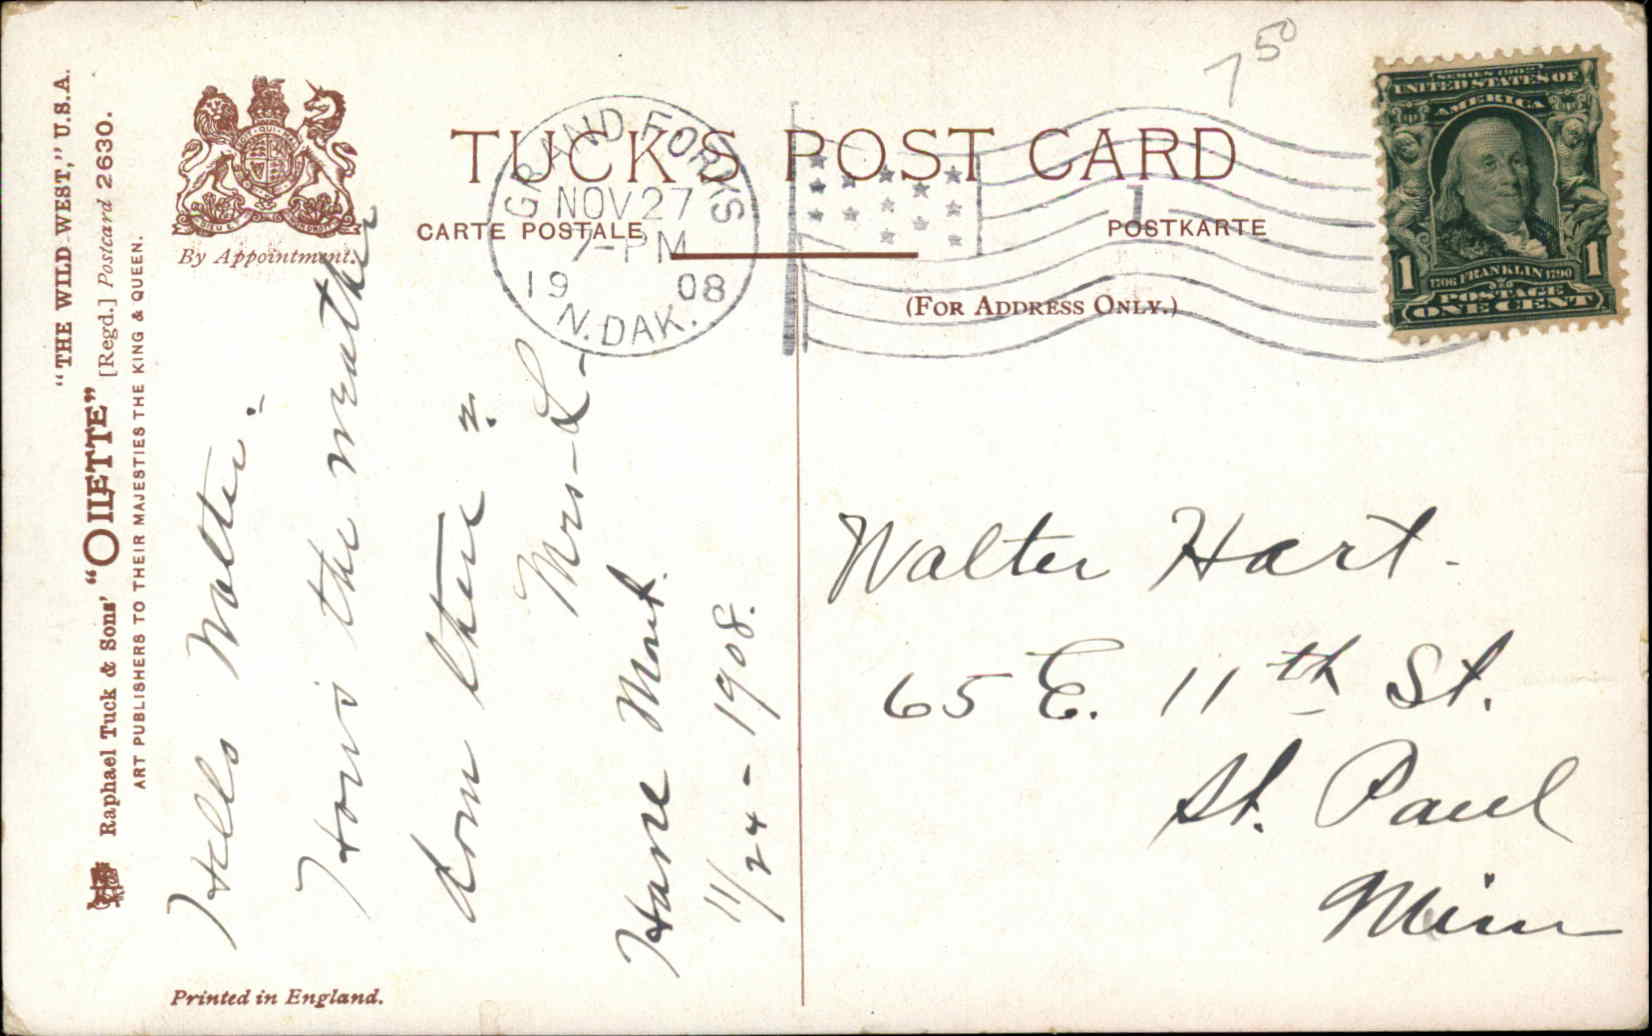 "THE WILD WEST," U.S.A.
Raphael Tuck & Sons' "OILETTE" [Regd.] Postcard 2630.
ART PUBLISHERS TO THEIR MAJESTIES THE KING & QUEEN.
By Appointment.
TUCK'S POST CARD
CARTE POSTALE
POSTKARTE
(FOR ADDRESS ONLY.)
GRAND FORKS
NOV 27
7-PM
1908
N. DAK.
1
7 50
SERIES 1902
UNITED STATES OF
AMERICA
1706 FRANKLIN 1790
POSTAGE
1 1
ONE CENT
Hello Walter:-
How's the weather
down there?
Mrs-L-
Havre Mont.
11/24-1908.
Walter Hart.
65 E. 11th St.
St. Paul
Minn
Printed in England.